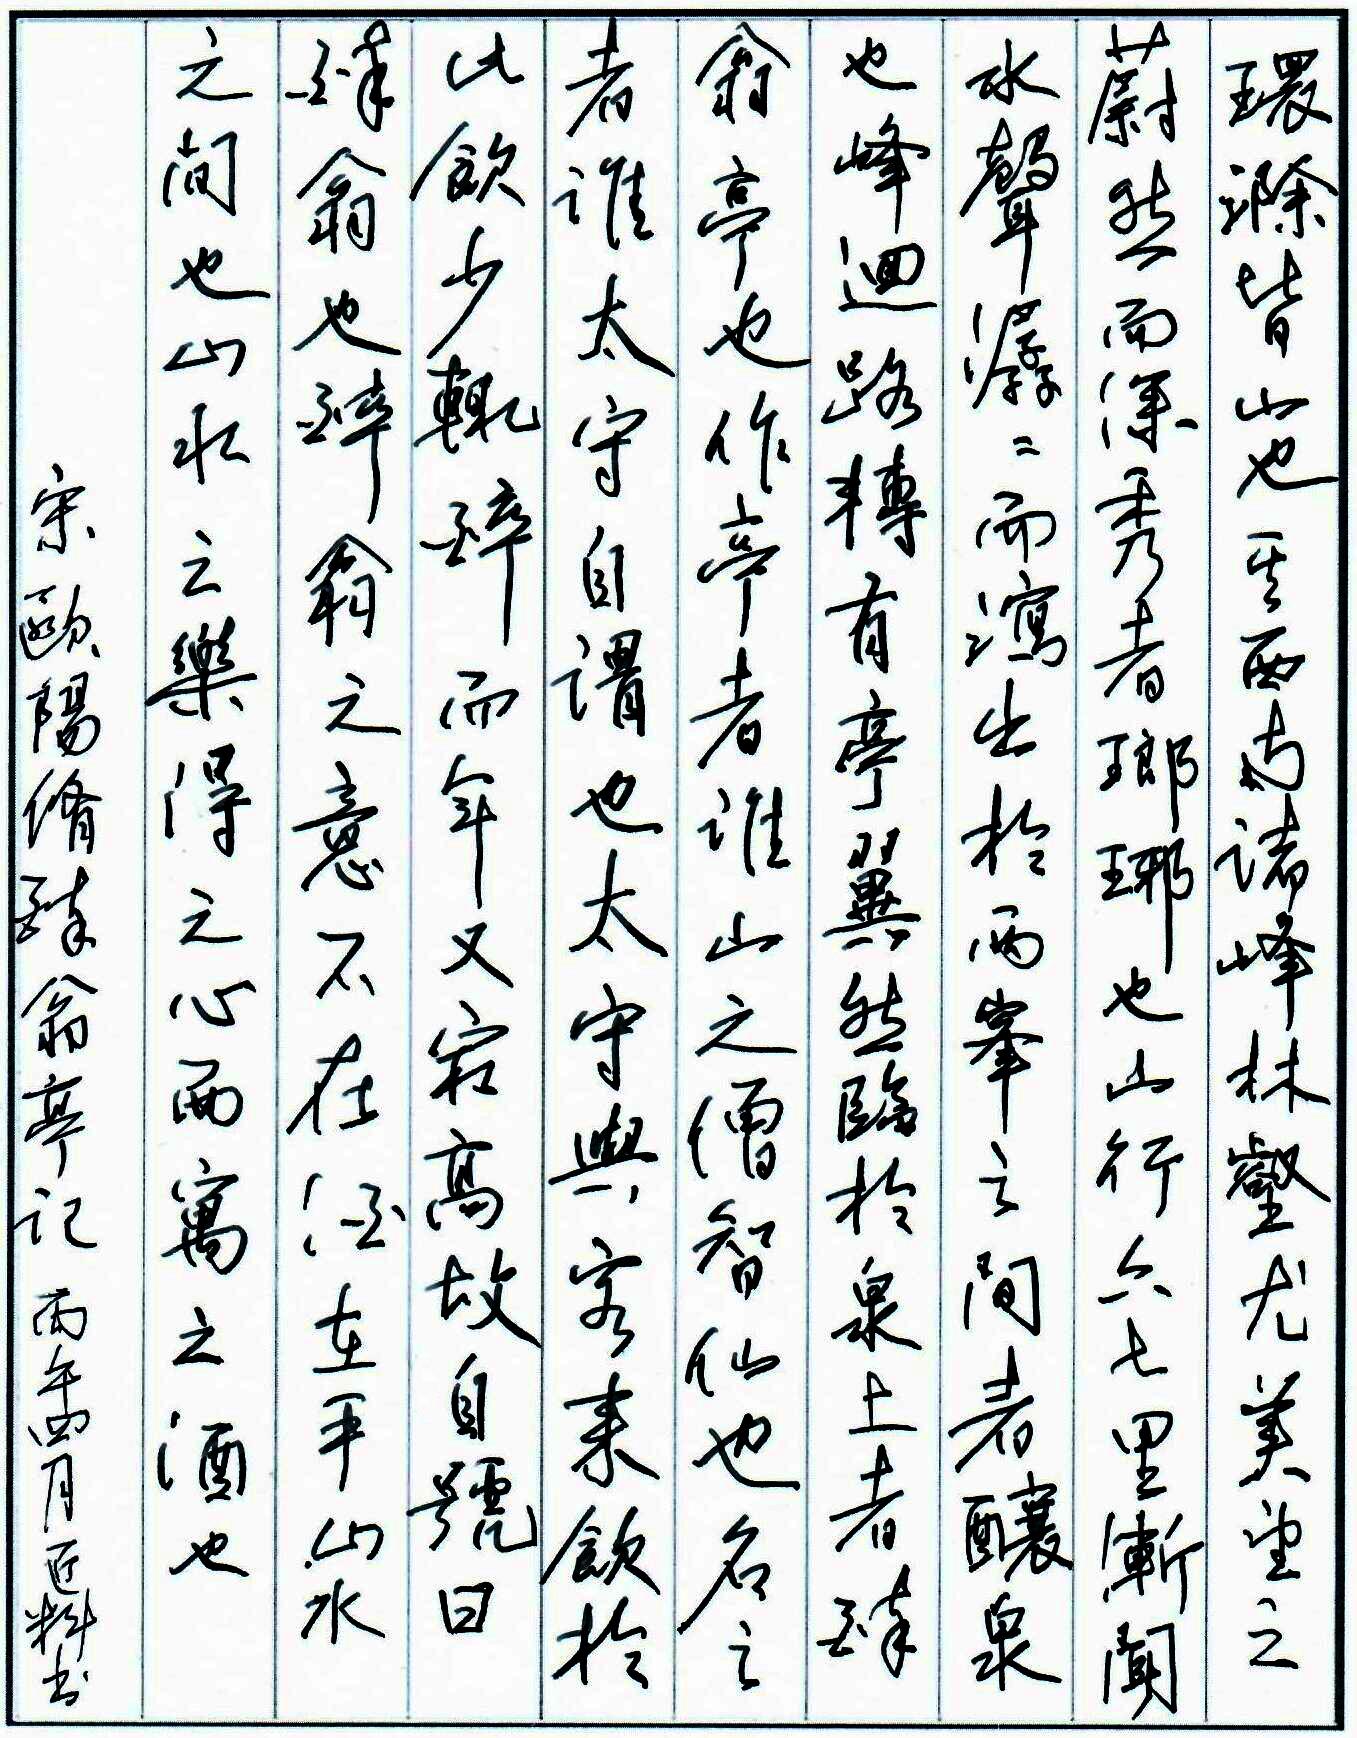 環滁皆山也其西南諸峰林壑尤美望之
蔚然而深秀者瑯琊也山行六七里漸聞
水聲潺〻而瀉出於兩峯之間者釀泉
也峰迴路轉有亭翼然臨於泉上者醉
翁亭也作亭者誰山之僧智仙也名之
者誰太守自謂也太守與客来飲於
此飲少輒醉而年又最高故自號曰
醉翁也醉翁之意不在酒在乎山水
之間也山水之樂得之心而寓之酒也
宋歐陽脩醉翁亭记 丙午四月 书